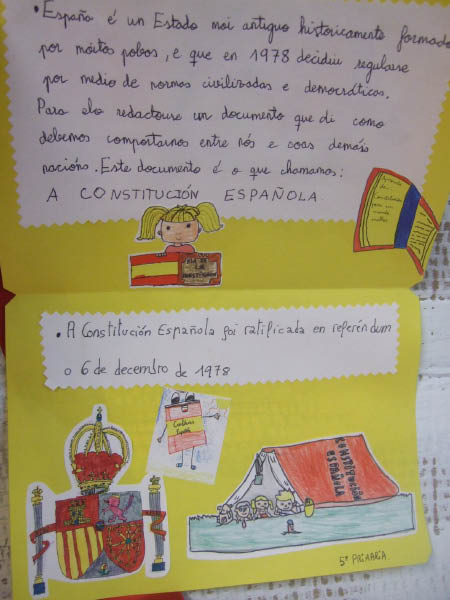 • España é un Estado moi antiguo historicamente formado
por moitos pobos, e que en 1978 decidiu regularse
por medio de normas civilizadas e democráticas.
Para elo redactouse un documento que di como
debemos comportarnos entre nós e coas demais
nacións. Este documento é o que chamamos:
A CONSTITUCIÓN ESPAÑOLA.
DÍA DE LA CONSTITUCIÓN
• A Constitución Española foi ratificada en referéndum
o 6 de decembro de 1978
CONSTITUCIÓN
ESPAÑOLA
5º PRIMARIA